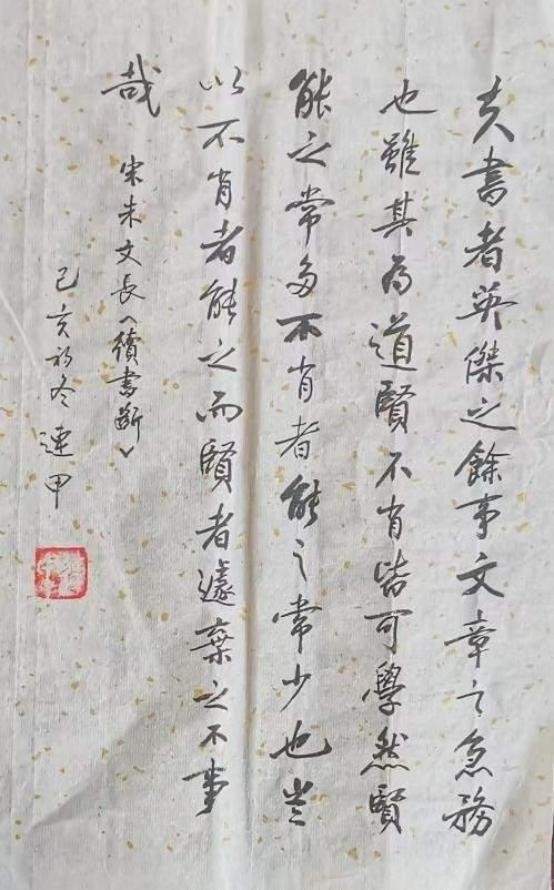 夫書者英傑之餘事文章之急務
也雖其為道賢不肖皆可學然賢
能之常多不肖者能之常少也豈
以不肖者能之而賢者遽棄之不事
哉
宋朱文長《續書斷》
己亥初冬連甲